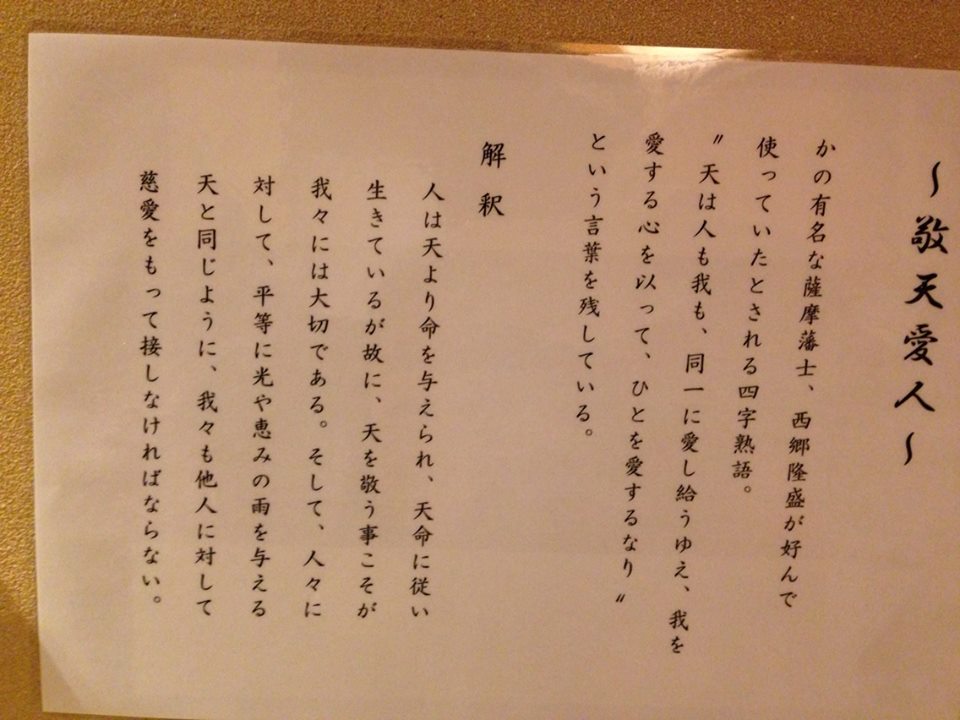 ～敬天愛人～
かの有名な薩摩藩士、西郷隆盛が好んで
使っていたとされる四字熟語。
〝天は人も我も、同一に愛し給うゆえ、我を
愛する心を以って、ひとを愛するなり〟
という言葉を残している。
解釈
人は天より命を与えられ、天命に従い
生きているが故に、天を敬う事こそが
我々には大切である。そして、人々に
対して、平等に光や恵みの雨を与える
天と同じように、我々も他人に対して
慈愛をもって接しなければならない。